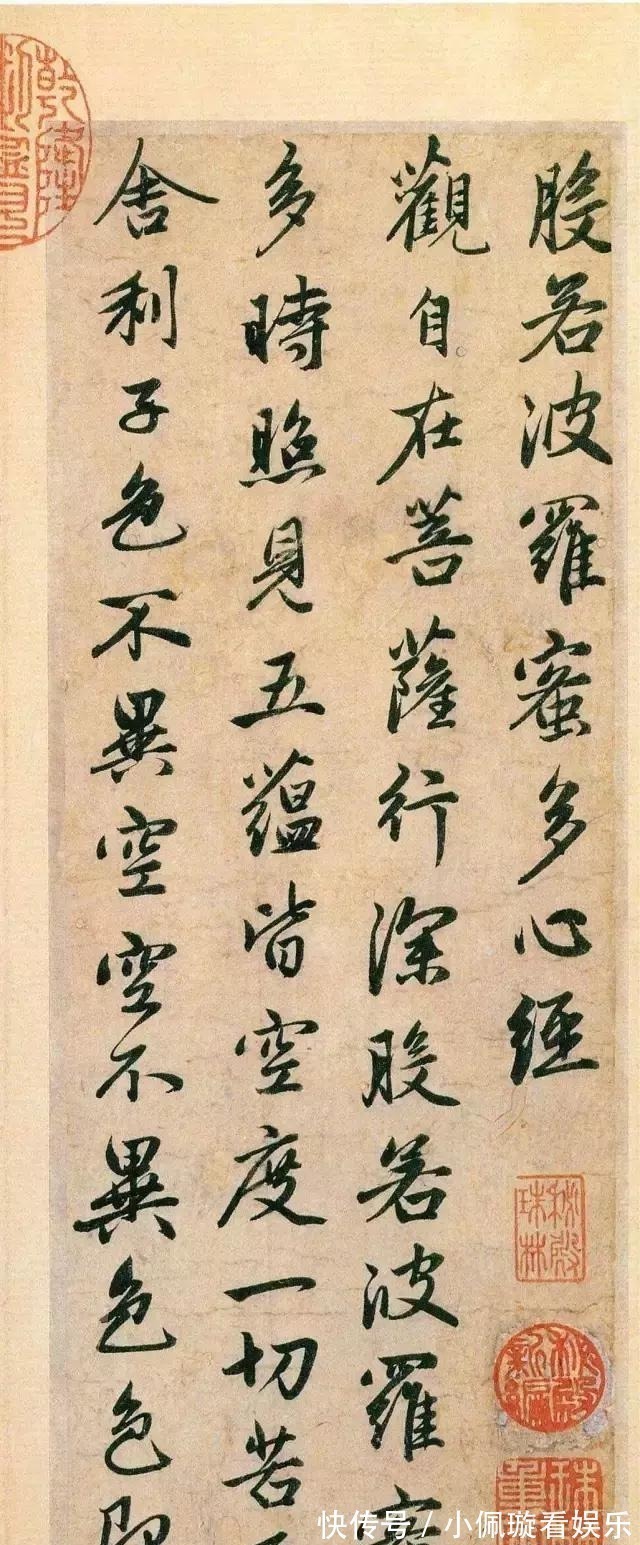 般若波羅蜜多心經
觀自在菩薩行深般若波羅
多時照見五蘊皆空度一切苦
舍利子色不異空空不異色色即
乾隆
秘殿珠林
秘殿新編
珠
快传号 / 小佩璇看娱乐